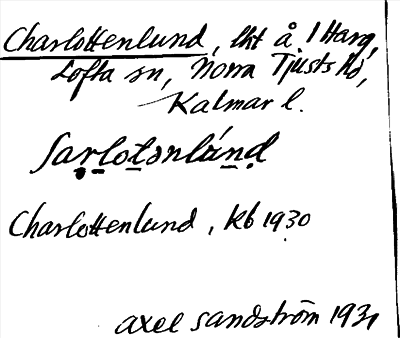 Charlottenlund, lht å. 1 Harg,
Lofta sn, Norra Tjusts hd,
Kalmar l.
Sarlotənlúnd
Charlottenlund, kb 1930
axel Sandström 1931